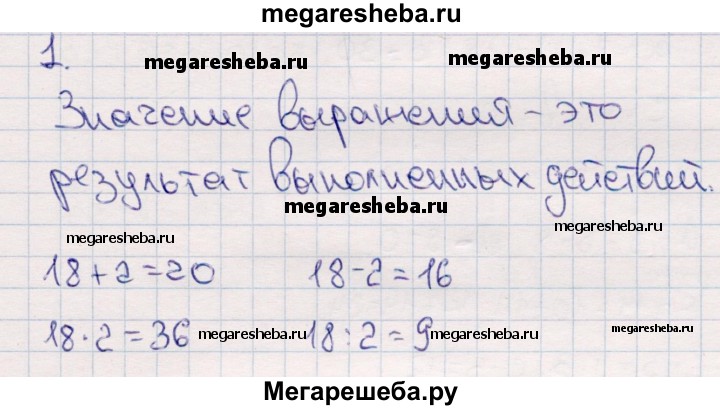 megaresheba.ru
1.
megaresheba.ru megaresheba.ru
Значение выражения - это
результат выполненных действий.
megaresheba.ru
megaresheba.ru megaresheba.ru
18+2=20 18-2=16
18·2=36 megaresheba.ru 18:2=9 megaresheba.ru megaresheba.ru
Мегарешеба.ру